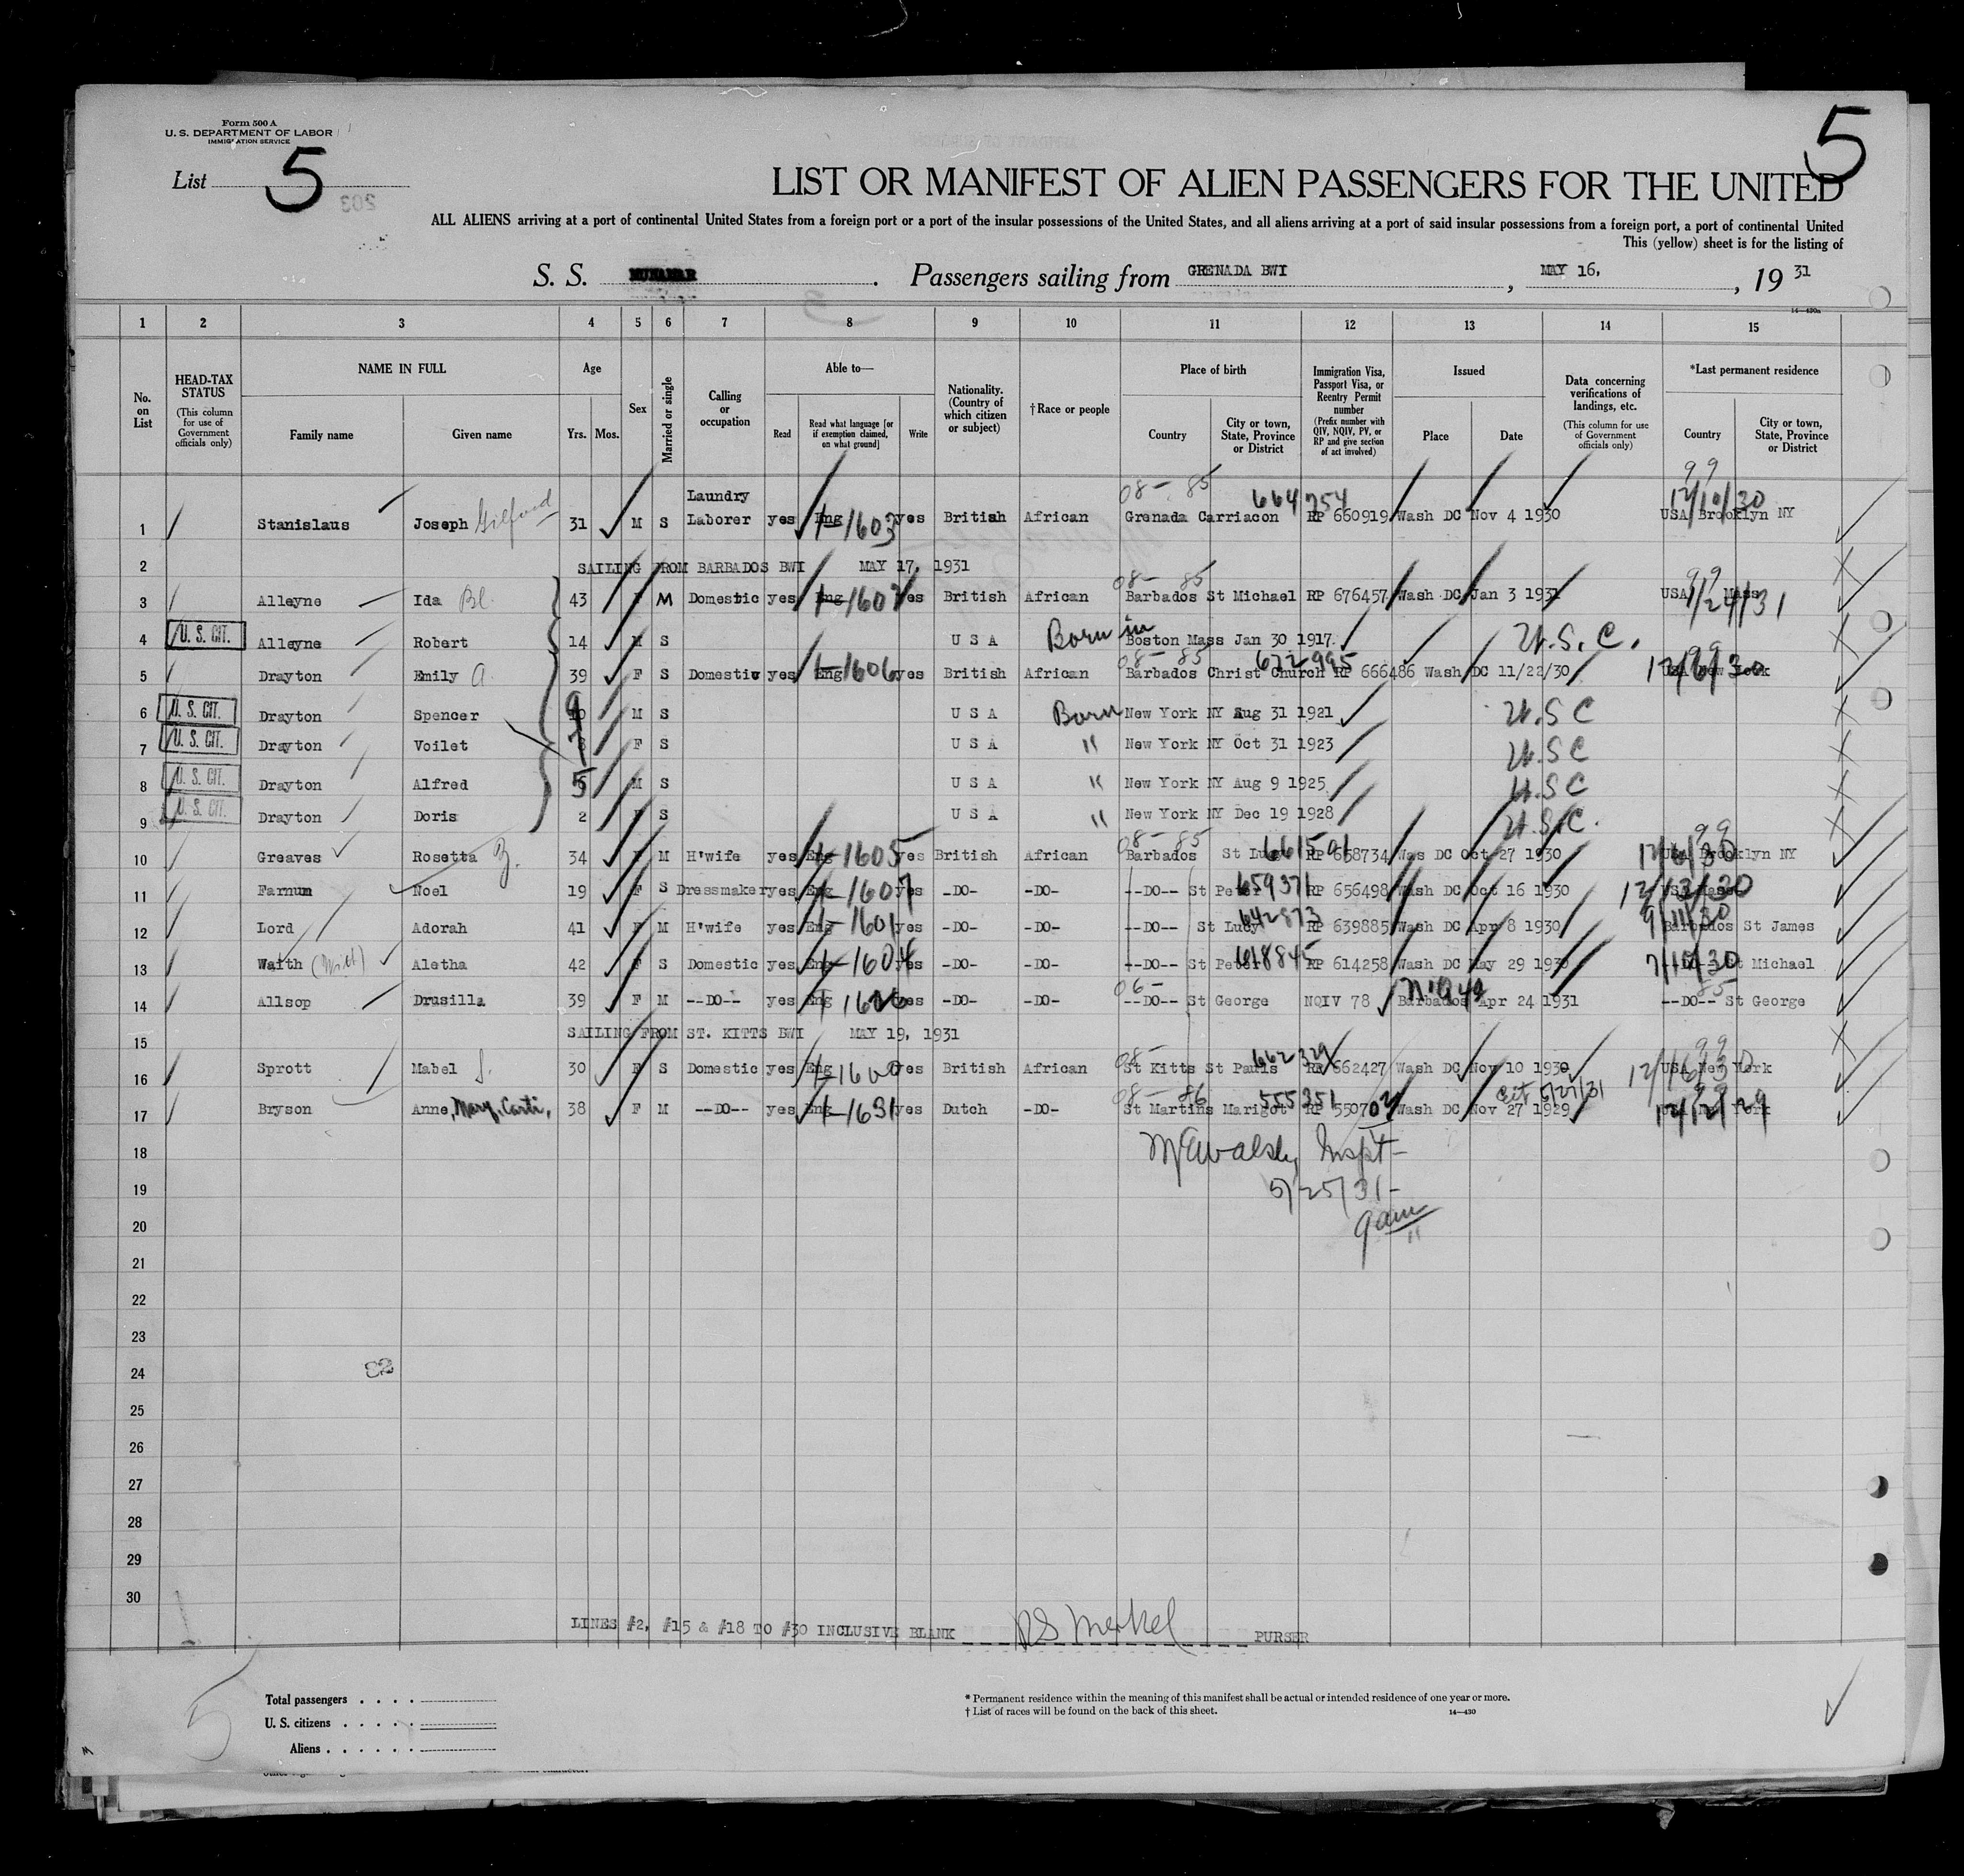 Form 500 A
U. S. DEPARTMENT OF LABOR
IMMIGRATION SERVICE
List 5
5
203
LIST OR MANIFEST OF ALIEN PASSENGERS FOR THE UNITED
ALL ALIENS arriving at a port of continental United States from a foreign port or a port of the insular possessions of the United States, and all aliens arriving at a port of said insular possessions from a foreign port, a port of continental United
This (yellow) sheet is for the listing of
S. S. MUNAMAR . Passengers sailing from GRENADA BWI , MAY 16, , 19 31
14—430a
1 2 3 4 5 6 7 8 9 10 11 12 13 14 15
No. on List
HEAD-TAX STATUS (This column for use of Government officials only)
NAME IN FULL Family name Given name
Age Yrs. Mos.
Sex
Married or single
Calling or occupation
Able to— Read Read what language [or if exemption claimed, on what ground] Write
Nationality. (Country of which citizen or subject)
†Race or people
Place of birth Country City or town, State, Province or District
Immigration Visa, Passport Visa, or Reentry Permit number (Prefix number with QIV, NQIV, PV, or RP and give section of act involved)
Issued Place Date
Data concerning verifications of landings, etc. (This column for use of Government officials only)
*Last permanent residence Country City or town, State, Province or District
08- 85 664754 99 12/10/30
1 Stanislaus Joseph Gilford 31 M S Laundry Laborer yes Eng 1-1603 yes British African Grenada Carriacon RP 660919 Wash DC Nov 4 1930 USA Brooklyn NY
2 SAILING FROM BARBADOS BWI MAY 17, 1931
08- 85 99 1/24/31
3 Alleyne Ida Bl. 43 F M Domestic yes Eng yes British African Barbados St Michael RP 676457 Wash DC Jan 3 1931 USA Mass
4 U. S. CIT. Alleyne Robert 14 M S U S A Born in Boston Mass Jan 30 1917 U.S.C.
08- 85 672995 99 12/6/30
5 Drayton Emily A. 39 F S Domestic yes Eng 1-1606 yes British African Barbados Christ Church RP 666486 Wash DC 11/22/30 USA New York
6 U. S. CIT. Drayton Spencer 9 M S U S A Born New York NY Aug 31 1921 U.S C
7 U. S. CIT. Drayton Voilet 7 F S U S A " New York NY Oct 31 1923 U.S C
8 U. S. CIT. Drayton Alfred 5 M S U S A " New York NY Aug 9 1925 U.S C
9 U. S. CIT. Drayton Doris 2 F S U S A " New York NY Dec 19 1928 U.S.C.
08- 85 661501 99 12/6/30
10 Greaves Rosetta Z. 34 F M H'wife yes Eng 1-1605 yes British African Barbados St Lucy RP 658734 Was DC Oct 27 1930 USA Brooklyn NY
11 Farnum Noel 19 F S Dressmaker yes Eng 1-1607 yes -DO- -DO- --DO-- St Peter 659371 RP 656498 Wash DC Oct 16 1930 USA Mass 12/3/30
12 Lord Adorah 41 F M H'wife yes Eng 1-1601 yes -DO- -DO- --DO-- St Lucy 642873 RP 639885 Wash DC Apr 8 1930 9/11/30 Barbados St James
13 Waith 42 Aletha F S Domestic yes Eng 1-1604 yes -DO- -DO- --DO-- St Peter 618845 RP 614258 Wash DC May 29 1930 St Michael
06- 85
14 Allsop Drusilla 39 F M --DO-- yes Eng 1606 yes -DO- -DO- --DO-- St George NQIV 78 Barbados Apr 24 1931 --DO-- St George
15 SAILING FROM ST. KITTS BWI MAY 19, 1931
08- 662329 99 12/16/30
16 Sprott Mabel J. 30 F S Domestic yes Eng 1-1600 yes British African St Kitts St Pauls RP 662427 Wash DC Nov 10 1930 USA New York
08- 86 555351 5/27/31 99 12/2/29
17 Bryson Anne, Mary, Carti, 38 F M --DO-- yes Eng 1-1631 yes Dutch -DO- St Martins Marigot RP 550702 Wash DC Nov 27 1929 USA New York
18 McAwalsh, Inspt-
19 5/25/31-
20 9am
21 "
22
23
24 32
25
26
27
28
29
30
LINES #2, #15 & #18 TO #30 INCLUSIVE BLANK RS Merkel PURSER
5
Total passengers . . . .
U. S. citizens . . . . .
Aliens . . . . . .
* Permanent residence within the meaning of this manifest shall be actual or intended residence of one year or more.
† List of races will be found on the back of this sheet. 14—430